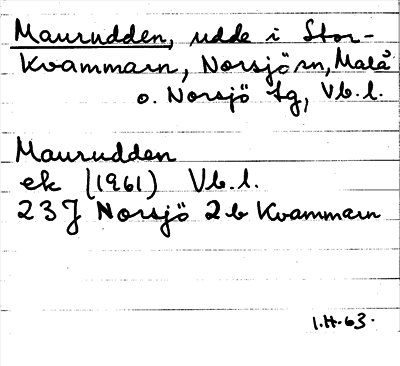 Maurudden, udde i Stor-
Kvammarn, Norsjö sn, Malå
o. Norsjö tg, Vb.l.
Maurudden
ek (1961) Vb.l.
23J Norsjö 2b Kvammarn
I.H-63.